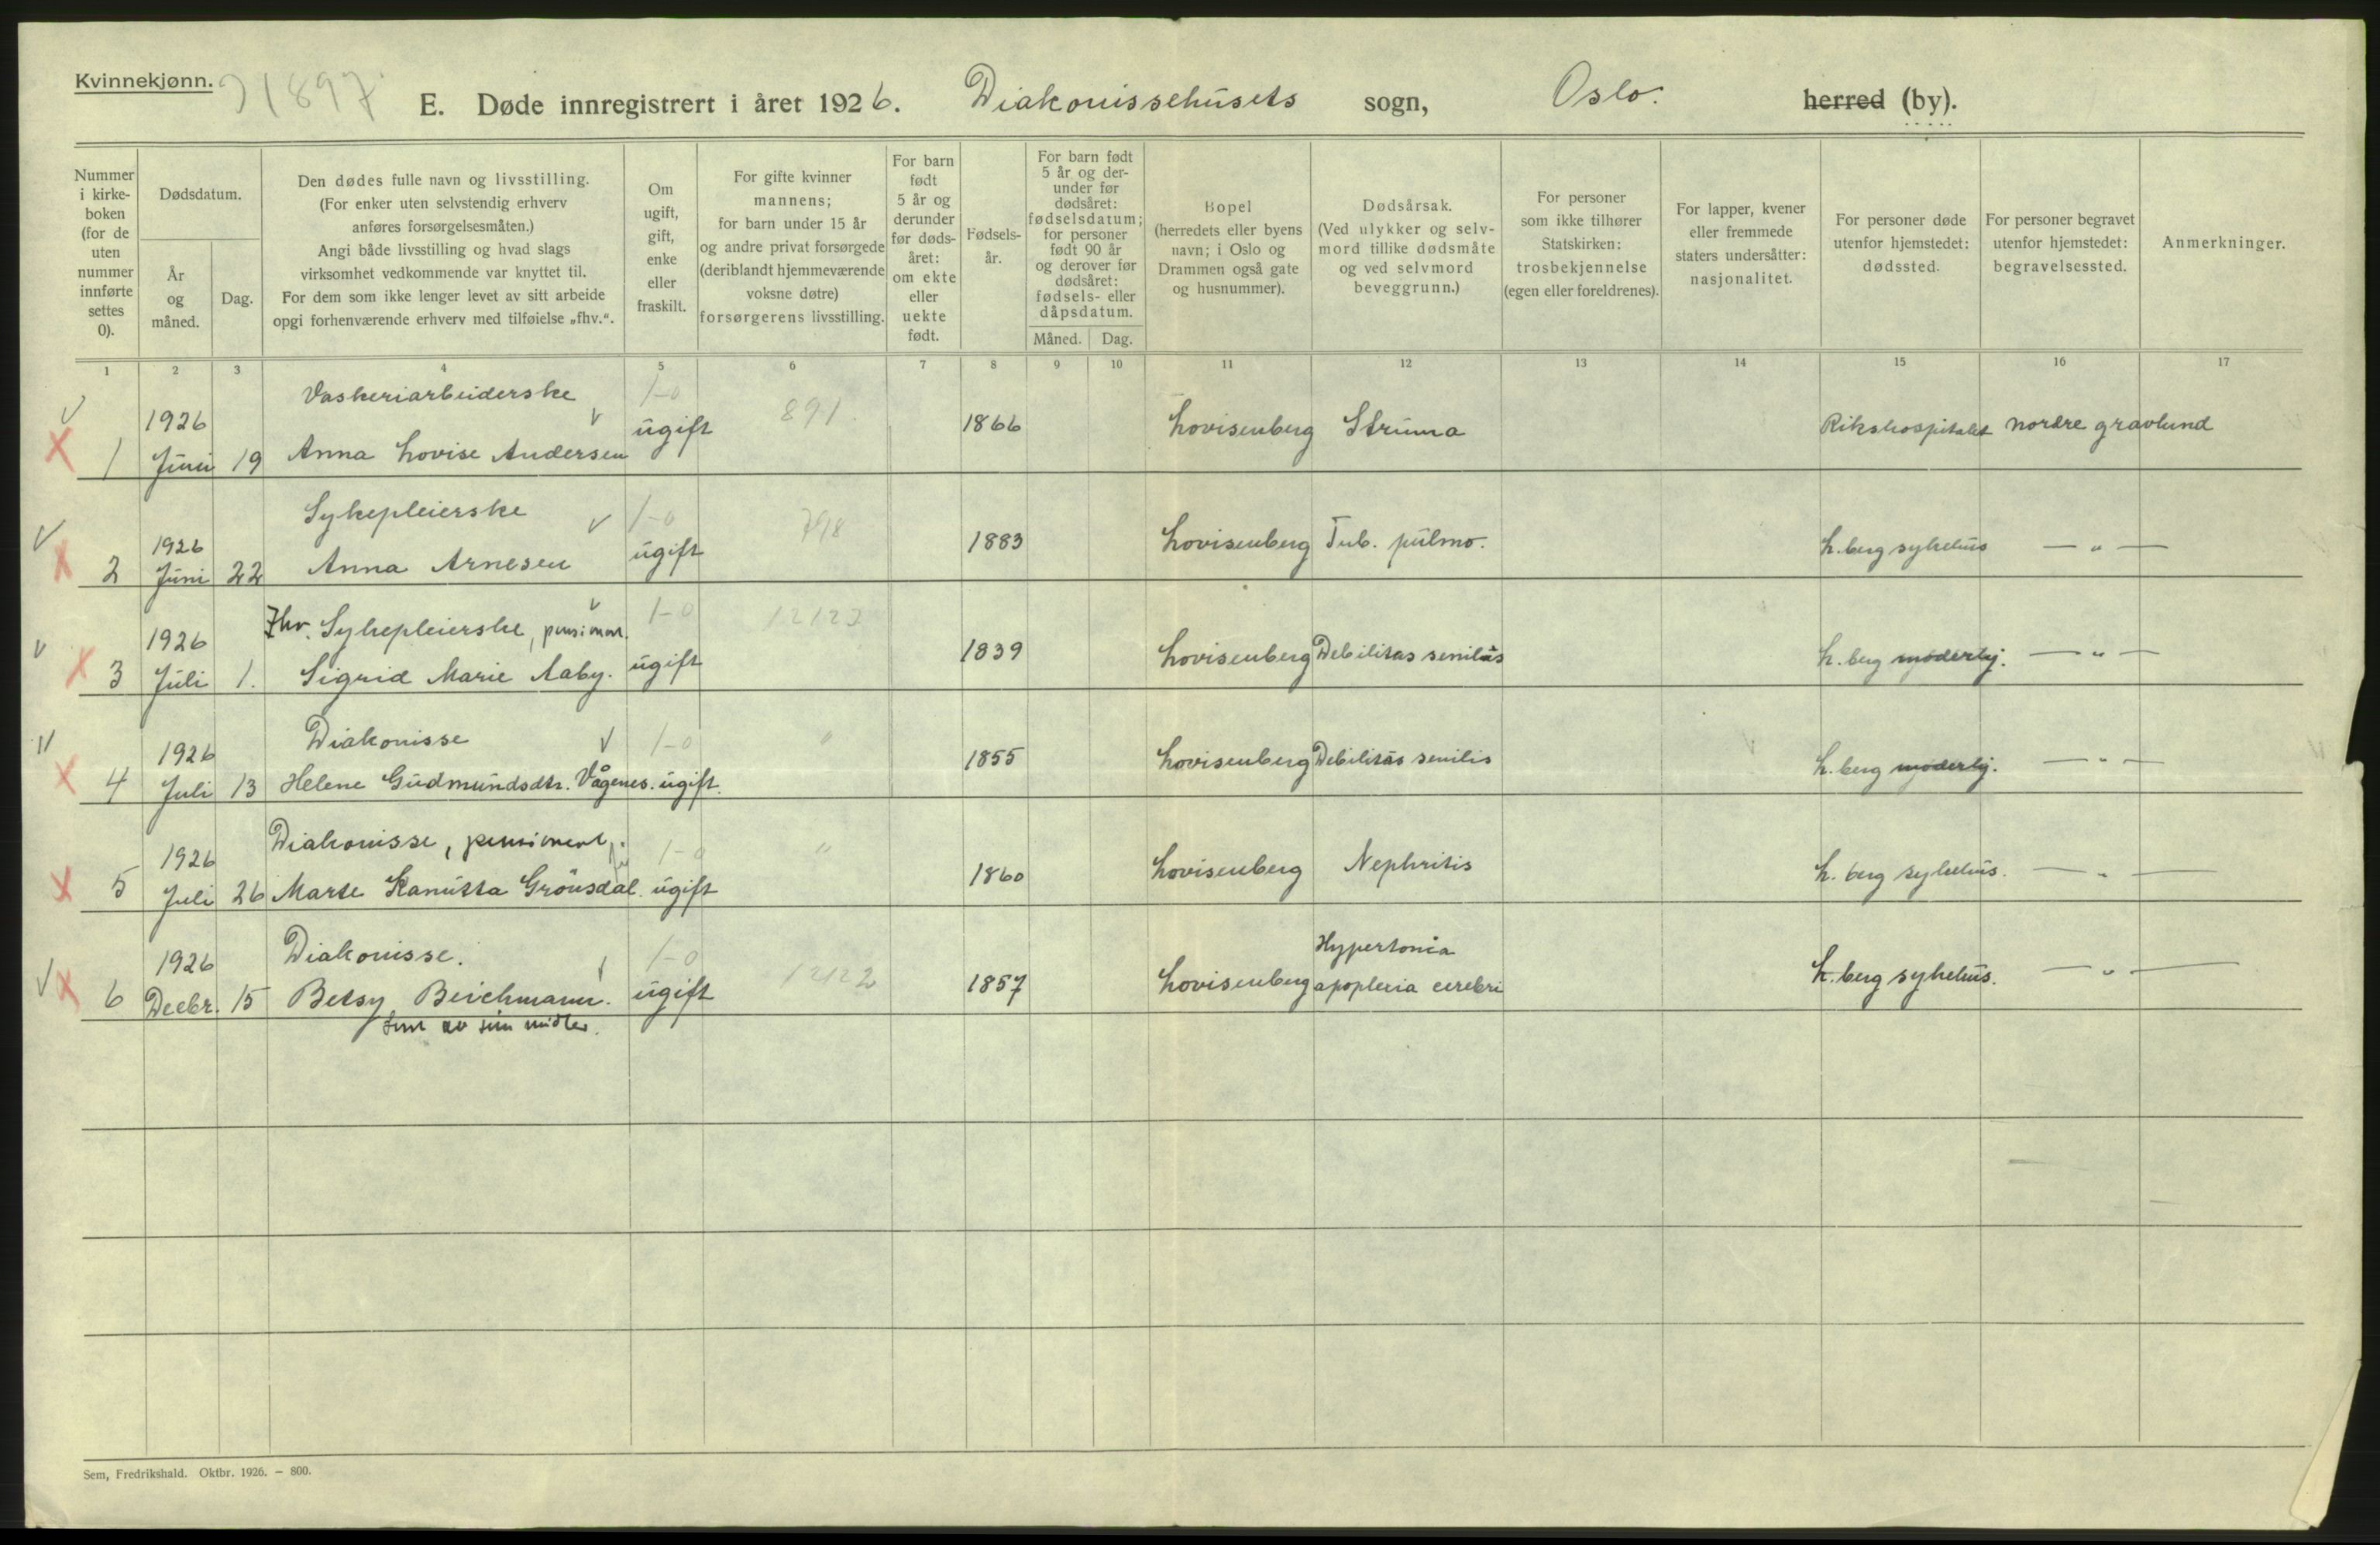 Kvinnekjønn. 31897
E. Døde innregistrert i året 1926. Diakonissehusets sogn, Oslo. herred (by).
Nummer i kirkeboken (for de uten nummer innførte settes 0).
Dødsdatum.
År og måned.
Dag.
Den dødes fulle navn og livsstilling.
(For enker uten selvstendig erhverv
anføres forsørgelsesmåten.)
Angi både livsstilling og hvad slags
virksomhet vedkommende var knyttet til.
For dem som ikke lenger levet av sitt arbeide
opgi forhenværende erhverv med tilføielse „fhv.“.
Om ugift, gift, enke eller fraskilt.
For gifte kvinner
mannens;
for barn under 15 år
og andre privat forsørgede
(deriblandt hjemmeværende
voksne døtre)
forsørgerens livsstilling.
For barn født 5 år og derunder før dødsåret: om ekte eller uekte født.
Fødselsår.
For barn født 5 år og derunder før dødsåret: fødselsdatum; for personer født 90 år og derover før dødsåret: fødsels- eller dåpsdatum.
Måned. Dag.
Bopel
(herredets eller byens
navn; i Oslo og
Drammen også gate
og husnummer).
Dødsårsak.
(Ved ulykker og selvmord tillike dødsmåte
og ved selvmord
beveggrunn.)
For personer
som ikke tilhører
Statskirken:
trosbekjennelse
(egen eller foreldrenes).
For lapper, kvener
eller fremmede
staters undersåtter:
nasjonalitet.
For personer døde
utenfor hjemstedet:
dødssted.
For personer begravet
utenfor hjemstedet:
begravelsessted.
Anmerkninger.
1 2 3 4 5 6 7 8 9 10 11 12 13 14 15 16 17
Vaskeriarbeiderske 1-0
1926 ugift 891 1866 Lovisenberg Struma Rikshospitalet nordre gravlund
1 Juni 19 Anna Lovise Andersen
Sykepleierske 1-0 798
1926 ugift 1883 Lovisenberg Tub. pulmo. L.berg sykehus — " —
2 Juni 22 Anna Arnesen
Fhv. Sykepleierske, pensionert. 1-0 12122
1926 1839 Lovisenberg Debilitas senilis L.berg moderhj. — " —
3 Juli 1. Sigrid Marie Aaby. ugift
Diakonisse 1-0 "
1926 1855 Lovisenberg Debilitas senilis L.berg moderhj. — " —
4 Juli 13 Helene Gudmundsdtr. Vågenes. ugift.
Diakonisse, pensionert. 1-0 "
1926 1860 Lovisenberg Nephritis L.berg sykehus. — " —
5 Juli 26 Marte Kanutta Grönsdal. ugift
Diakonisse. 1-0 Hypertonia
1926 12122 1857 Lovisenberg apoplexia cerebri L.berg sykehus. — " —
6 Decbr. 15 Betsy Beichmann. ugift
levet av sine midler.
Sem, Fredrikshald. Oktbr. 1926. – 800.